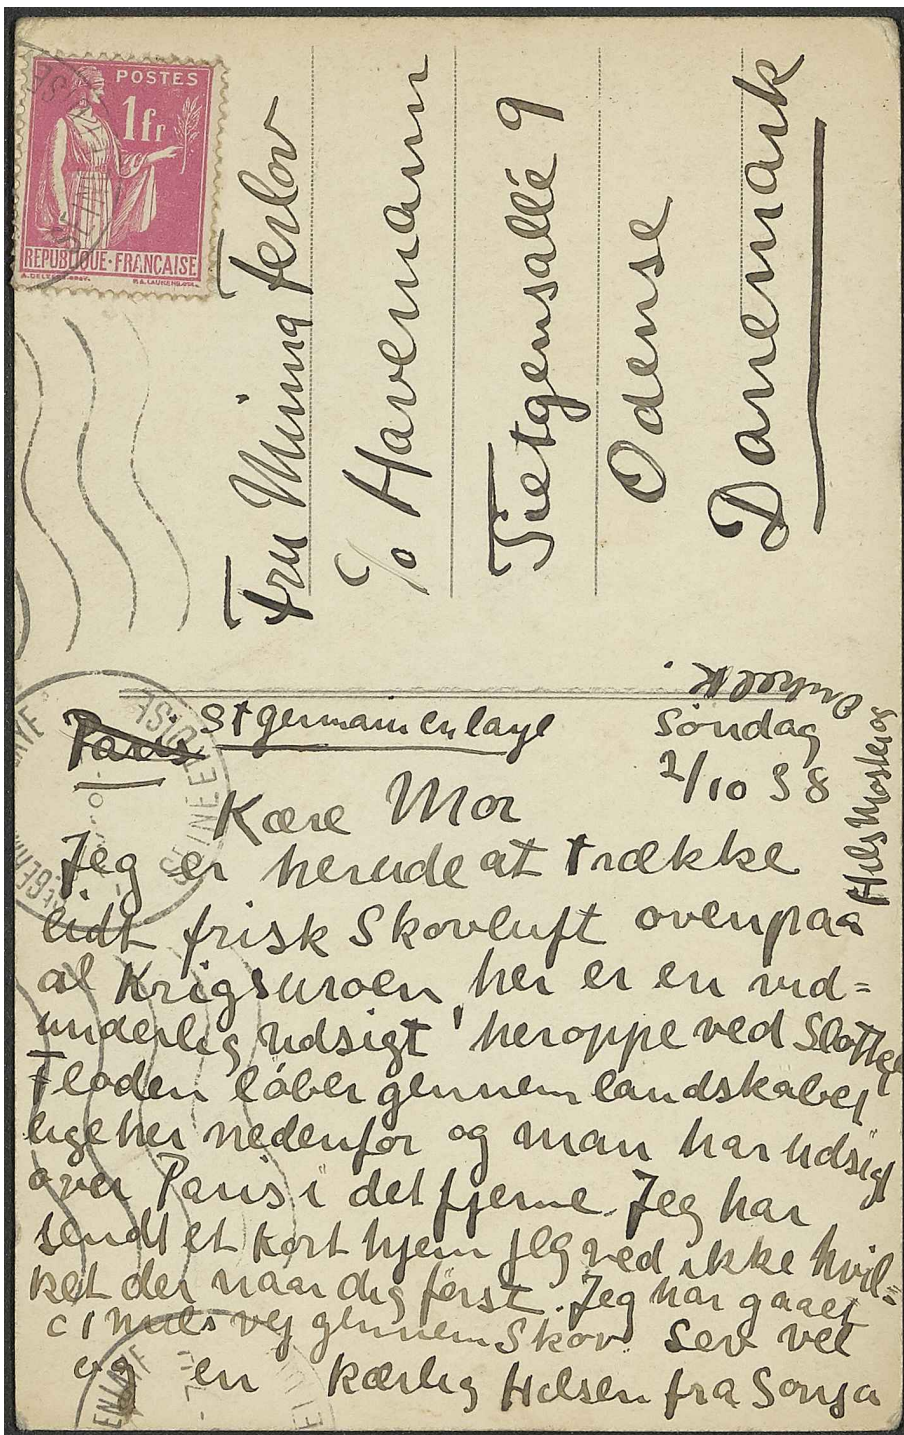 POSTES
1fr
REPUBLIQUE·FRANÇAISE
Fru Minna Ferlov
c/o Havemann
Tietgensallé 9
Odense
Danemark
Paris St germain en laye
Søndag
2/10 38
Kære Mor
Jeg er herude at trække
lidt frisk Skovluft ovenpaa
al Krigsuroen, her er en vid=
underlig udsigt heroppe ved Slottet
Floden løber gennem landskabet
lige her nedenfor og man har udsigt
over Paris i det fjerne. Jeg har
sendt et kort hjem jeg ved ikke hvil=
ket der naar dig først. Jeg har gaaet
c 1 mils vej gennem Skov. Lev vel
og en kærlig Hilsen fra Sonja
Hils Moster og
Onkel K.